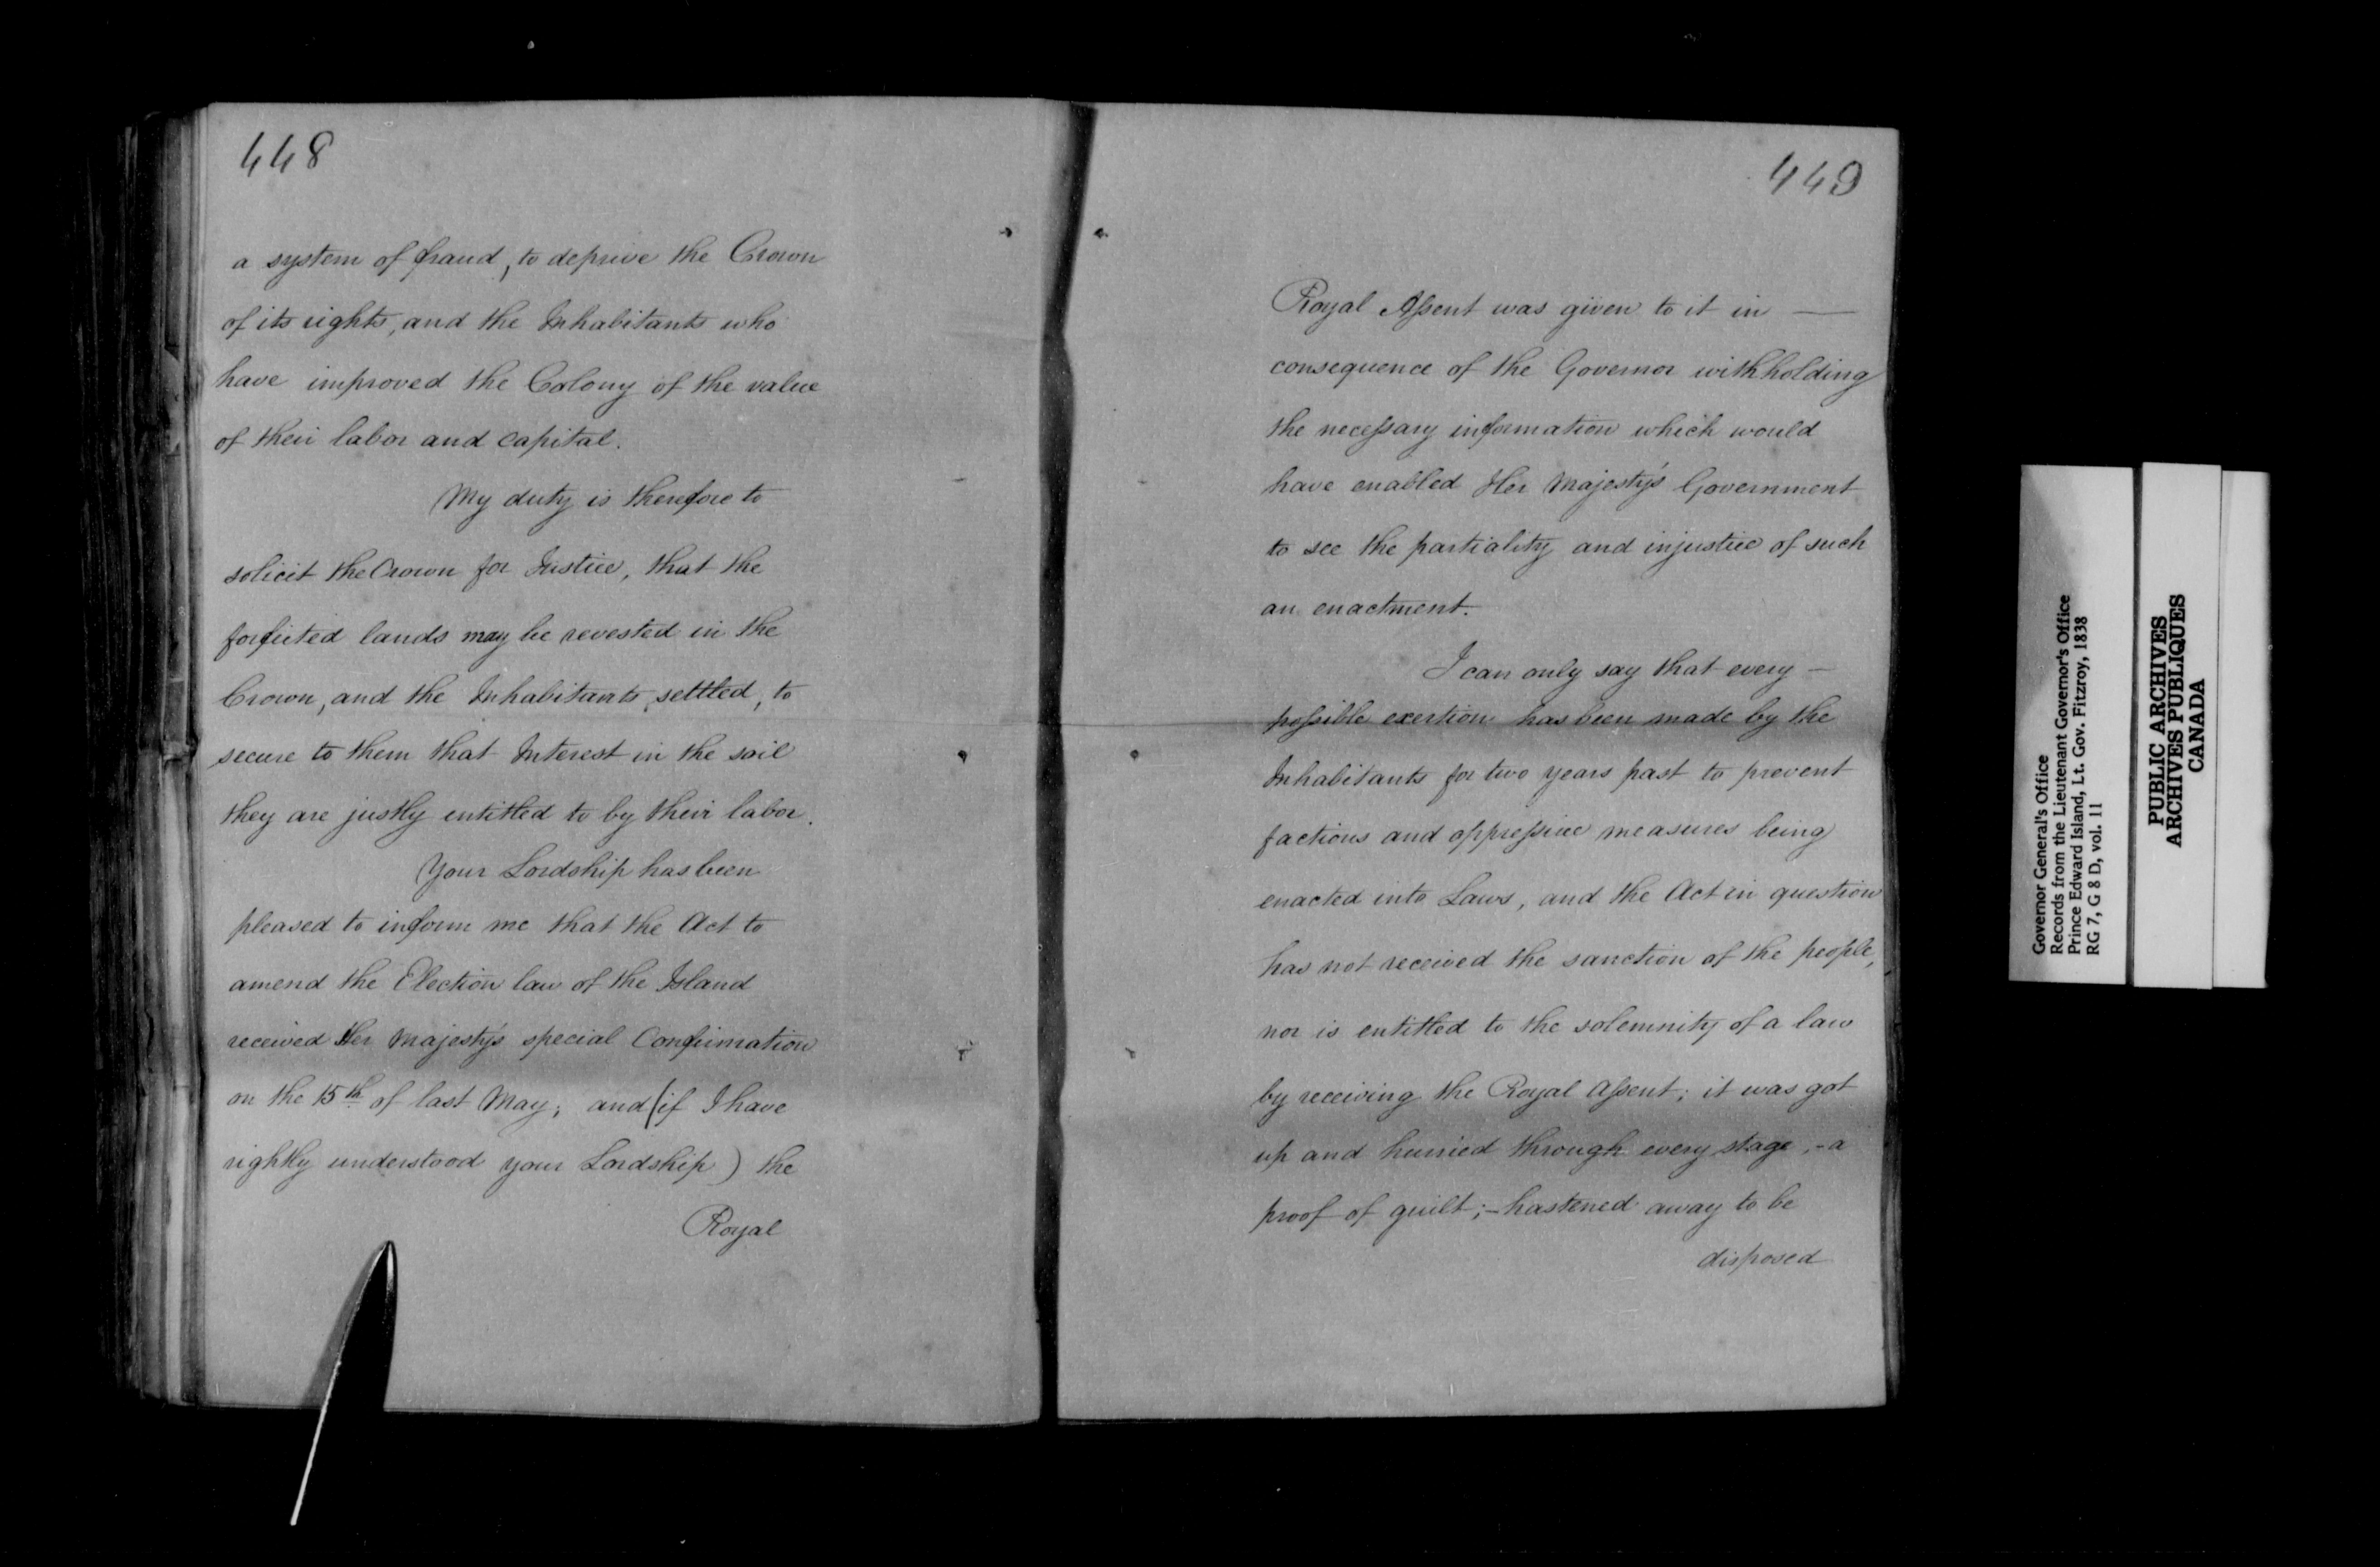 448
a system of fraud, to deprive the Crown
of its rights, and the Inhabitants who
have improved the Colony of the value
of their labor and capital.
My duty is therefore to
solicit the Crown for Justice, that the
forfeited lands may be revested in the
Crown, and the Inhabitants settled, to
secure to them that Interest in the soil
they are justly entitled to by their labor.
Your Lordship has been
pleased to inform me that the Act to
amend the Election law of the Island
received Her Majesty's special Confirmation
on the 15th of last May; and (if I have
rightly understood your Lordship) the
Royal
449
Royal Assent was given to it in —
consequence of the Governor withholding
the necessary information which would
have enabled Her Majesty's Government
to see the partiality and injustice of such
an enactment.
I can only say that every —
possible exertion has been made by the
Inhabitants for two years past to prevent
factious and oppressive measures being
enacted into Laws, and the Act in question
has not received the sanction of the people,
nor is entitled to the solemnity of a law
by receiving the Royal Assent; it was got
up and hurried through every stage, - a
proof of guilt; - hastened away to be
disposed
Governor General's Office
Records from the Lieutenant Governor's Office
Prince Edward Island, Lt. Gov. Fitzroy, 1838
RG 7, G 8 D, vol. 11
PUBLIC ARCHIVES
ARCHIVES PUBLIQUES
CANADA